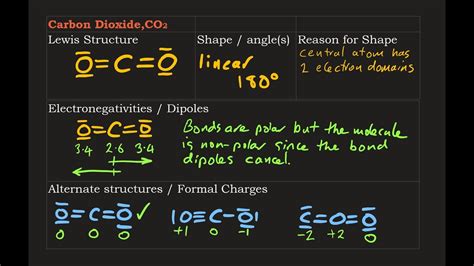 Carbon Dioxide,CO₂
Lewis Structure
Shape / angle(s)
Reason for Shape
O=C=O
linear
180°
central atom has
2 electron domains
Electronegativities / Dipoles
O=C=O
3.4 2.6 3.4
Bonds are polar but the molecule
is non-polar since the bond
dipoles cancel.
Alternate structures / Formal Charges
O=C=O ✓
0 0 0
|O≡C-O|
+1 0 -1
C=O=O
-2 +2 0